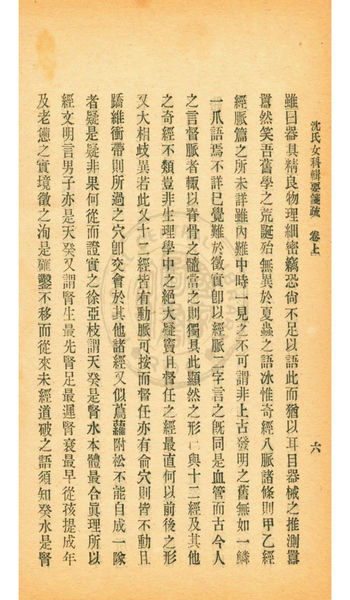 沈氏女科輯要箋疏 卷上
六
雖曰器具精良物理細密竊恐尙不足以語此而猶以耳目器械之推測囂
囂然笑吾舊學之荒誕殆無異於夏蟲之語冰惟奇經八脈諸條則甲乙經
經脈篇之所未詳雖內難中時一見之不可謂非上古發明之舊無如一鱗
一爪語焉不詳已覺難於徵實卽以經脈二字言之旣同是血管而古今人
之言督脈者輒以脊骨之髓當之則獨具此顯然之形已與十二經及其他
之奇經不類豈非生理學中之絕大疑竇且督任之經最直何以前後之形
又大相歧異若此又十二經皆有動脈可按而督任亦有俞穴則皆不動且
蹻維衝帶則所過之穴卽交會於其他諸經又似蔦蘿附松不能自成一隊
者疑是疑非果何從而證實之徐亞枝謂天癸是腎水本體最合眞理所以
經文明言男子亦是天癸又謂腎生最先腎足最遲腎衰最早從孩提成年
及老憊之實境徵之洵是確鑿不移而從來未經道破之語須知癸水是腎